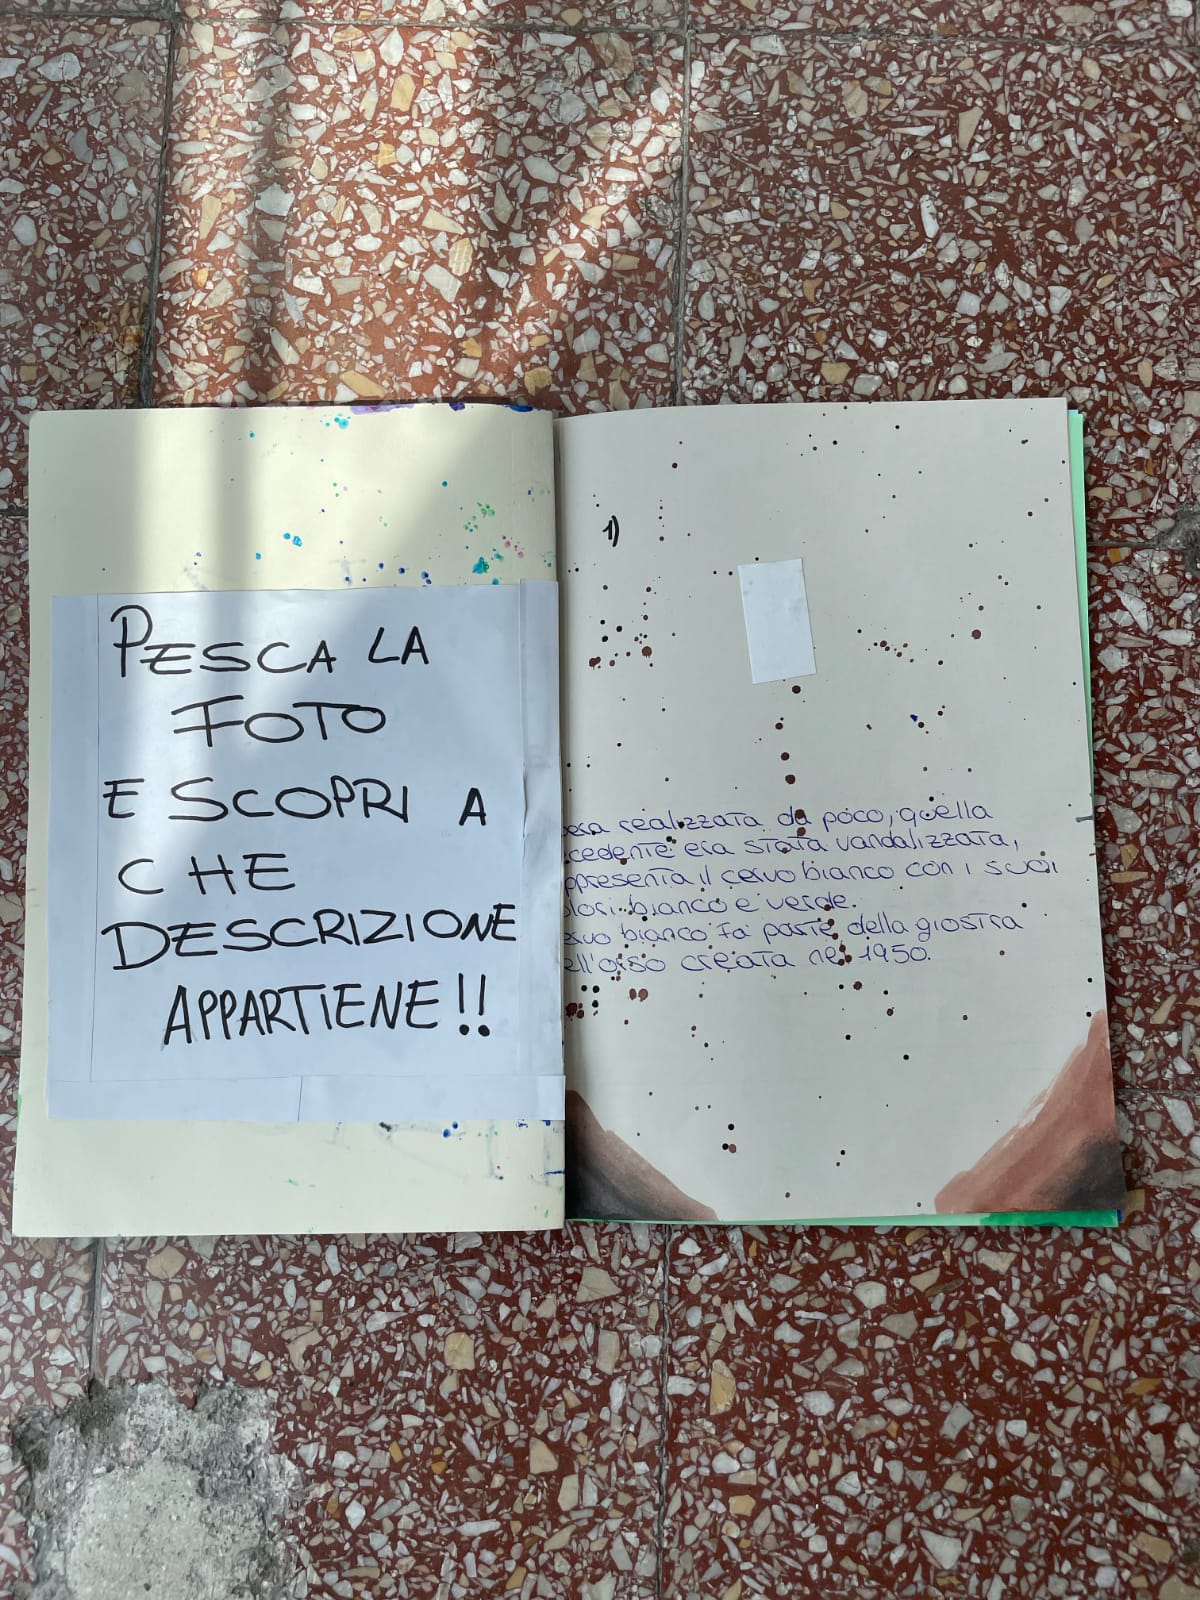 PESCA LA
FOTO
E SCOPRI A
CHE
DESCRIZIONE
APPARTIENE!!
1)
realizzata da poco, quella
cedente era stata vandalizzata,
ppresenta il cervo bianco con i suoi
bianco e verde.
bianco fa parte della giostra
ell'orso creata nel 1950.